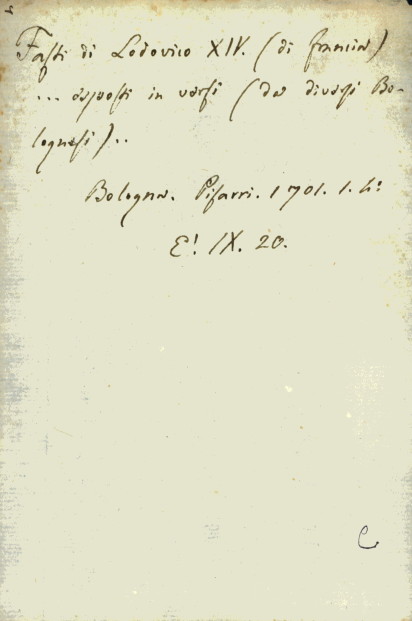 Fasti di Lodovico XIV. (di francia)
... esposti in versi (da diversi Bo-
lognesi)..
Bologna. Pisarri. 1701. 1. 4:
E! IX. 20.
C